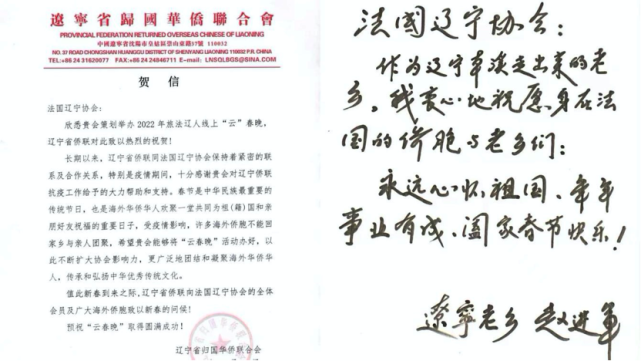 遼寧省歸國華僑聯合會
PROVINCIAL FEDERATION RETURNED OVERSEAS CHINESE OF LIAONING
中國遼寧省沈陽市皇姑區崇山東路37號 110032
NO. 37 ROAD CHONGSHAN HUANGGU DISTRICT OF SHENYANG LIAONING 110032 P.R. CHINA
TEL:+86 24 31620977 FAX:+86 24 24846711 E-mail: LNSQLBGS@SINA.COM
贺 信
法国辽宁协会:
欣悉贵会策划举办 2022 年旅法辽人线上“云”春晚,
辽宁省侨联对此致以热烈的祝贺!
长期以来,辽宁省侨联同法国辽宁协会保持着紧密的联
系及合作关系,特别是疫情期间,十分感谢贵会对辽宁侨联
抗疫工作给予的大力帮助和支持。春节是中华民族最重要的
传统节日,也是海外华侨华人欢聚一堂共同为祖(籍)国和亲
朋好友祝福的重要日子,受疫情影响,许多海外侨胞不能回
家乡与亲人团聚,希望贵会能够将“云春晚”活动办好,以
此不断扩大协会影响力,更广泛地团结和凝聚海外华侨华
人,传承和弘扬中华优秀传统文化。
值此新春到来之际,辽宁省侨联向法国辽宁协会的全体会
员及广大海外侨胞致以新春的问侯!
预祝“云春晚”取得圆满成功!
辽宁省归国华侨联合会
法国辽宁协会:
作为辽宁本溪走出来的老
乡,我衷心地祝愿身在法
国的侨胞与老乡们:
永远心怀祖国、年年
事业有成、阖家春节快乐!
辽宁老乡 赵进军